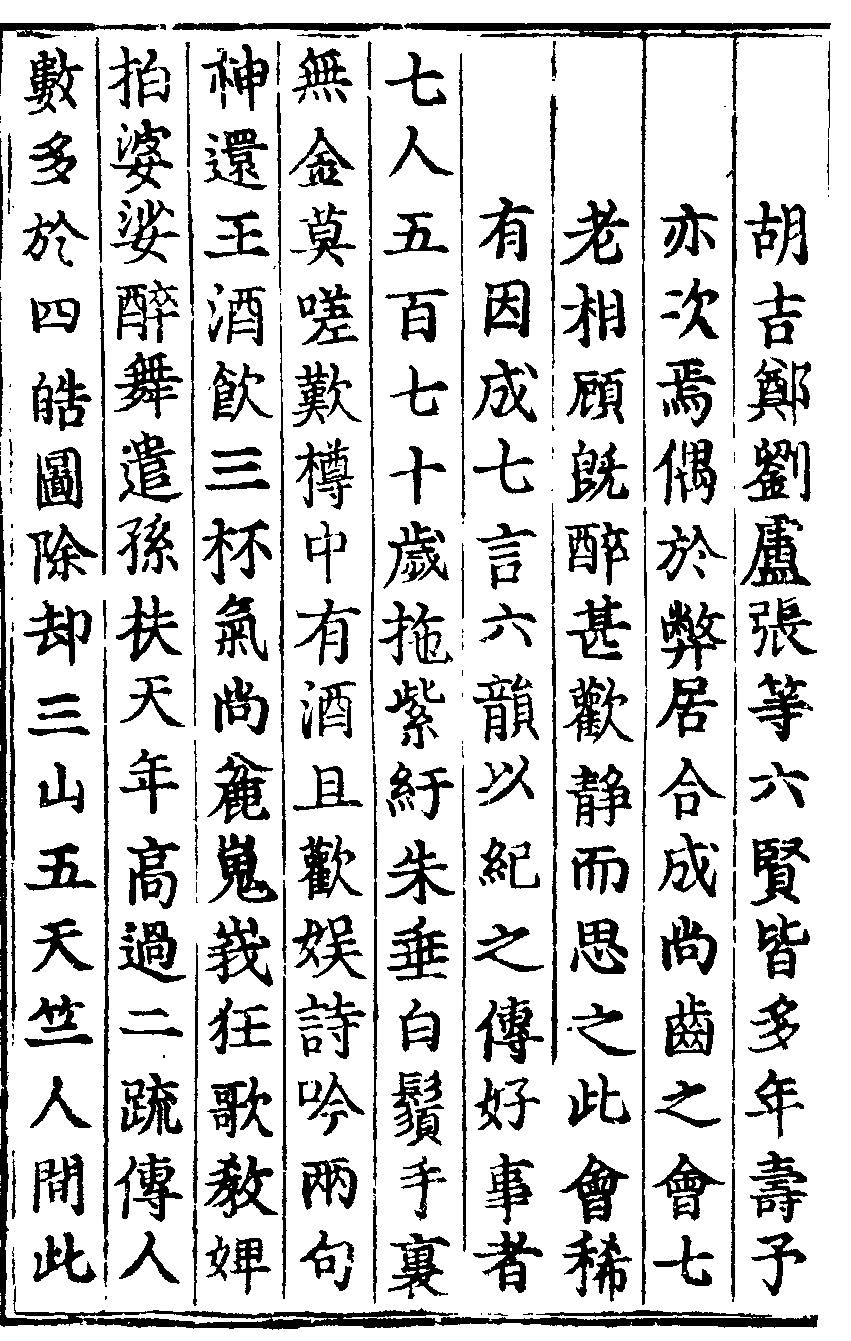 胡吉鄭劉盧張等六賢皆多年壽予
亦次焉偶於弊居合成尚齒之會七
老相顧旣醉甚歡静而思之此會稀
有因成七言六韻以紀之傳好事者
七人五百七十歲拖紫紆朱垂白鬚手裏
無金莫嗟歎樽中有酒且歡娱詩吟兩句
神還王酒飮三杯氣尚麄嵬峩狂歌教婢
拍婆娑醉舞遣孫扶天年高過二疏傳人
數多於四皓圖除却三山五天竺人間此